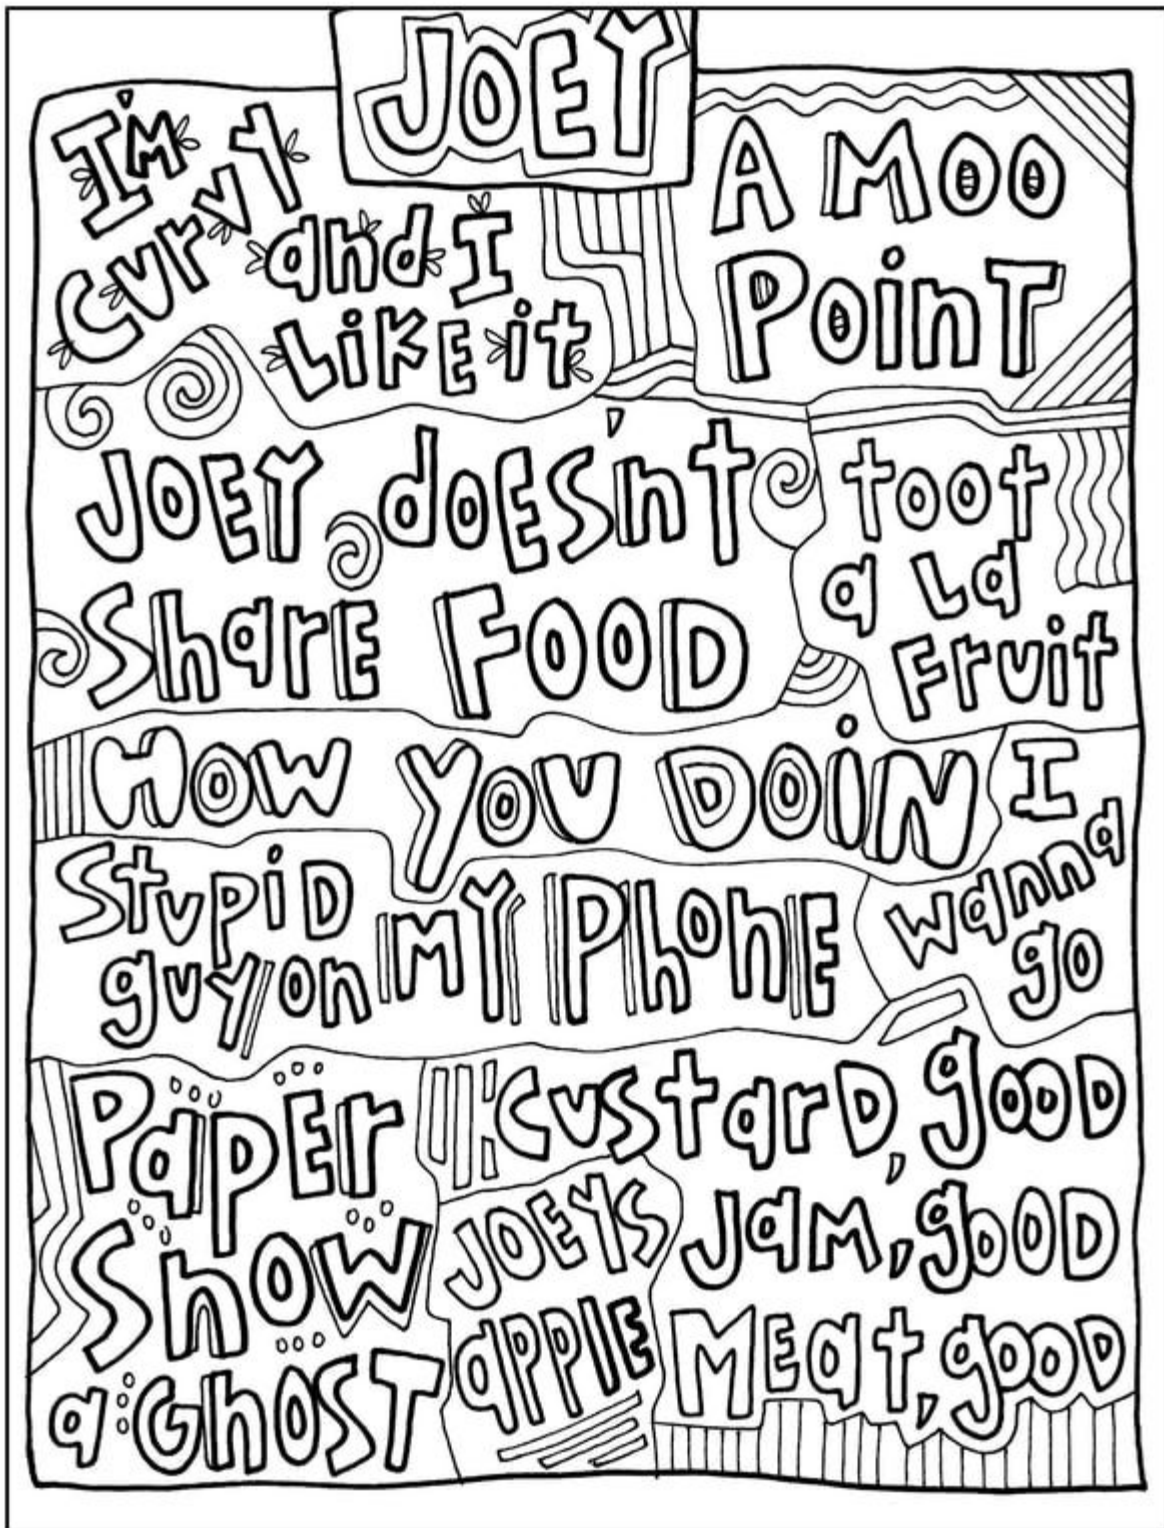 JOEY
I'M
CURVY
and I
LiKE it
A MOO
Point
JOEY doEs'nt
SharE FOOD
toot
a La
Fruit
How You DOiN
I
wanna
go
Stupid
guy on MY PhonE
PapEr
Snow
a GhOST
Custard, good
Jam, good
MEat, good
JOEYS
apple